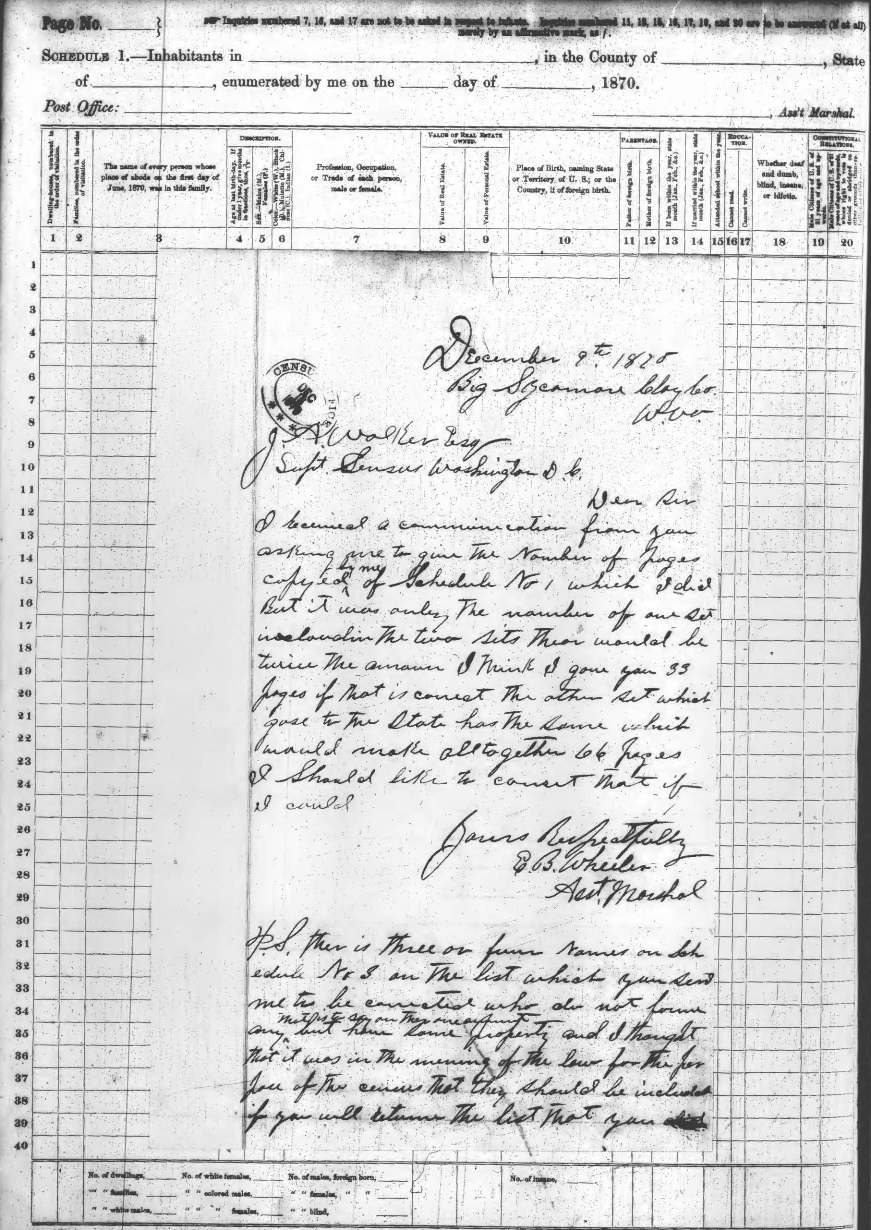 Page No.
Inquiries numbered 7, 16, and 17 are not to be asked in respect to infants. Inquiries numbered 11, 12, 15, 16, 17, 19, and 20 are to be answered (if at all)
merely by an affirmative mark, as /.
SCHEDULE 1.—Inhabitants in , in the County of , State
of , enumerated by me on the day of , 1870.
Post Office: , Ass't Marshal.
DESCRIPTION.
VALUE OF REAL ESTATE OWNED.
PARENTAGE.
EDUCATION.
CONSTITUTIONAL RELATIONS.
Dwelling-houses, numbered in the order of visitation.
Families, numbered in the order of visitation.
The name of every person whose place of abode on the first day of June, 1870, was in this family.
Profession, Occupation, or Trade of each person, male or female.
Value of Real Estate.
Value of Personal Estate.
Place of Birth, naming State or Territory of U. S.; or the Country, if of foreign birth.
Father of foreign birth.
Mother of foreign birth.
If born within the year, state month (Jan., Feb., &c.)
If married within the year, state month (Jan., Feb., &c.)
Attended school within the year.
Cannot read.
Cannot write.
Whether deaf and dumb, blind, insane, or idiotic.
1 2 3 4 5 6 7 8 9 10 11 12 13 14 15 16 17 18 19 20
1
2
3
4
5
6
7
8
9
10
11
12
13
14
15
16
17
18
19
20
21
22
23
24
25
26
27
28
29
30
31
32
33
34
35
36
37
38
39
40
December 9th. 1870
Big Sycamore Clay Co.
W.Va.
CENSU
J. A. Walker Esq
Supt. Census Washington D. C.
Dear Sir
I received a communication from you
asking me to give the Number of pages
by my
copyied of Schedule No 1 which I did
But it was only the number of one set
the two sits thear would be
twice the amoun I think I gave you 33
pages if that is corect the other set which
gose to the State has the same which
would make alltogether 66 pages
I Should like to corect that if
I could
Yours Respectfully
E. B. Wheeler
Asst. Marshal
P.S. ther is three or four Names on Sch
edule No 3 on the list which you send
me to be corected who do not forme
that is to say on ther own
any but have some property and I thought
that it was in the mening of the law for the per
pose of the census that they should be included
if you will return the list that you
No. of dwellings, No. of white females, No. of males, foreign born, No. of insane,
" " families, " " colored males, " " females, " "
" " white males, " " " females, " " blind,